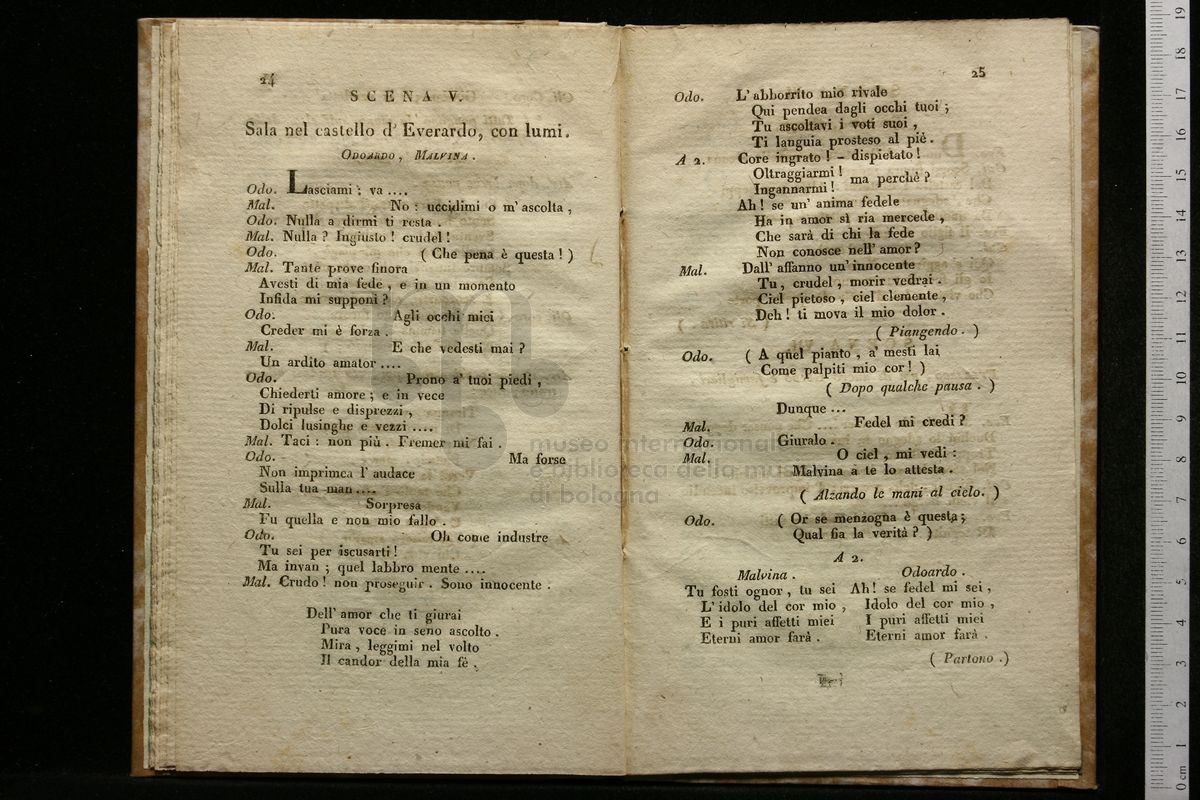 24
SCENA V.
Sala nel castello d' Everardo, con lumi.
ODOARDO, MALVINA.
Odo. Lasciami; va ....
Mal. No: uccidimi o m' ascolta,
Odo. Nulla a dirmi ti resta.
Mal. Nulla? Ingiusto! crudel!
Odo. (Che pena è questa!)
Mal. Tante prove finora
Avesti di mia fede, e in un momento
Infida mi supponi?
Odo. Agli occhi miei
Creder mi è forza.
Mal. E che vedesti mai?
Un ardito amator ....
Odo. Prono a' tuoi piedi,
Chiederti amore; e in vece
Di ripulse e disprezzi,
Dolci lusinghe e vezzi ....
Mal. Taci: non più. Fremer mi fai.
Odo. Ma forse
Non imprimea l' audace
Sulla tua man ....
Mal. Sorpresa
Fu quella e non mio fallo.
Odo. Oh come industre
Tu sei per iscusarti!
Ma invan; quel labbro mente ....
Mal. Crudo! non proseguir. Sono innocente.
Dell' amor che ti giurai
Pura voce in seno ascolto.
Mira, leggimi nel volto
Il candor della mia fè.
25
Odo. L' abborrito mio rivale
Qui pendea dagli occhi tuoi;
Tu ascoltavi i voti suoi,
Ti languia prosteso al piè.
A 2. Core ingrato! - dispietato!
Oltraggiarmi!
Ingannarmi! ma perchè?
Ah! se un' anima fedele
Ha in amor sì ria mercede,
Che sarà di chi la fede
Non conosce nell' amor?
Mal. Dall' affanno un' innocente
Tu, crudel, morir vedrai.
Ciel pietoso, ciel clemente,
Deh! ti mova il mio dolor.
(Piangendo.)
Odo. (A quel pianto, a' mesti lai
Come palpiti mio cor!)
(Dopo qualche pausa.)
Dunque ...
Mal. Fedel mi credi?
Odo. Giuralo.
Mal. O ciel, mi vedi:
Malvina a te lo attesta.
(Alzando le mani al cielo.)
Odo. (Or se menzogna è questa;
Qual fia la verità?)
A 2.
Malvina.
Tu fosti ognor, tu sei
L' idolo del cor mio,
E i puri affetti miei
Eterni amor farà.
Odoardo.
Ah! se fedel mi sei,
Idolo del cor mio,
I puri affetti miei
Eterni amor farà.
(Partono.)
museo internazionale
e biblioteca della musica
di bologna
0 cm 1 2 3 4 5 6 7 8 9 10 11 12 13 14 15 16 17 18 19